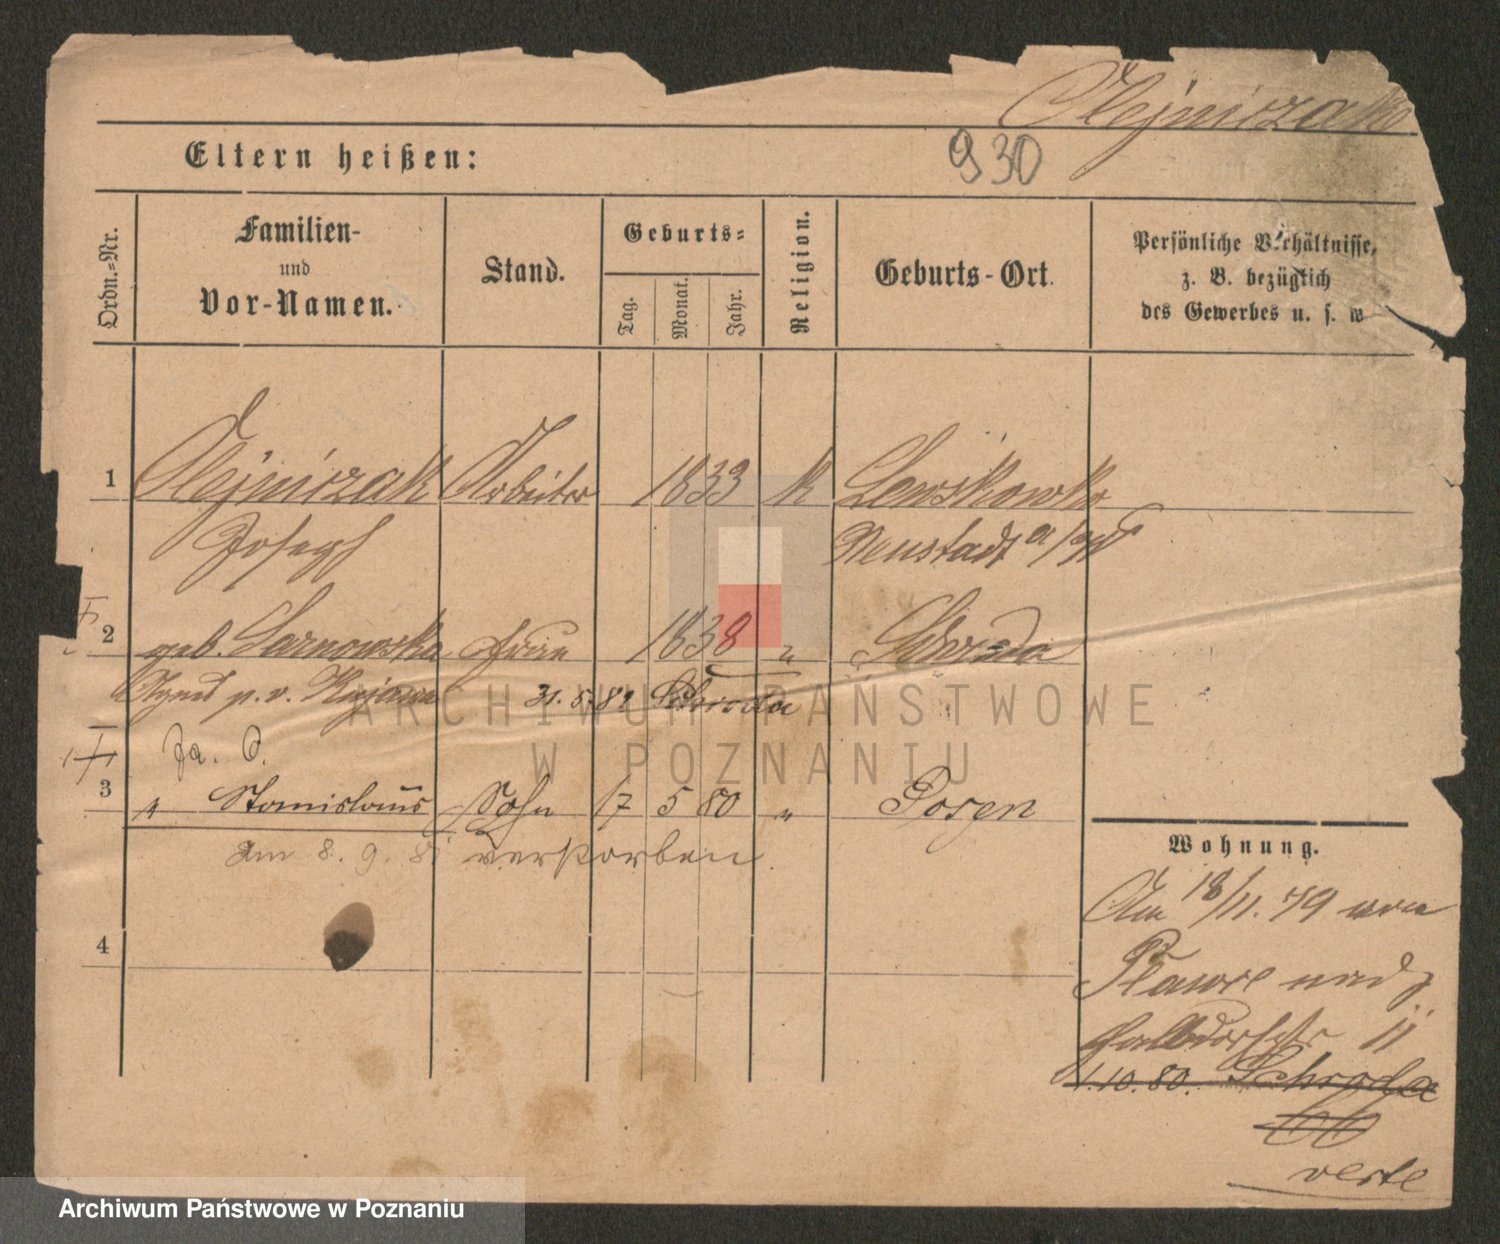 Olejniczak
930
Eltern heißen:
Ordn.-Nr.
Familien-
und
Vor-Namen.
Stand.
Geburts-
Tag.
Monat.
Jahr.
Religion.
Geburts-Ort.
Persönliche Verhältnisse,
z. B. bezüglich
des Gewerbes u. s. w
1 Olejniczak Arbeiter 1833 k Lewskowko
Joseph Neustadt a/W
2 geb. Sarnowska Frau 1838 " Schroda
Agnes 31.5.82 Schroda
3 " Stanislaus Sohn 17 5 80 " Posen
am 8. 9. 8 verstorben
4
Wohnung.
Am 18/11. 79 von
Plawce
Halbdorfstr 11
1.10.80. Schroda
66
verte
ARCHIWUM PAŃSTWOWE
W POZNANIU
Archiwum Państwowe w Poznaniu